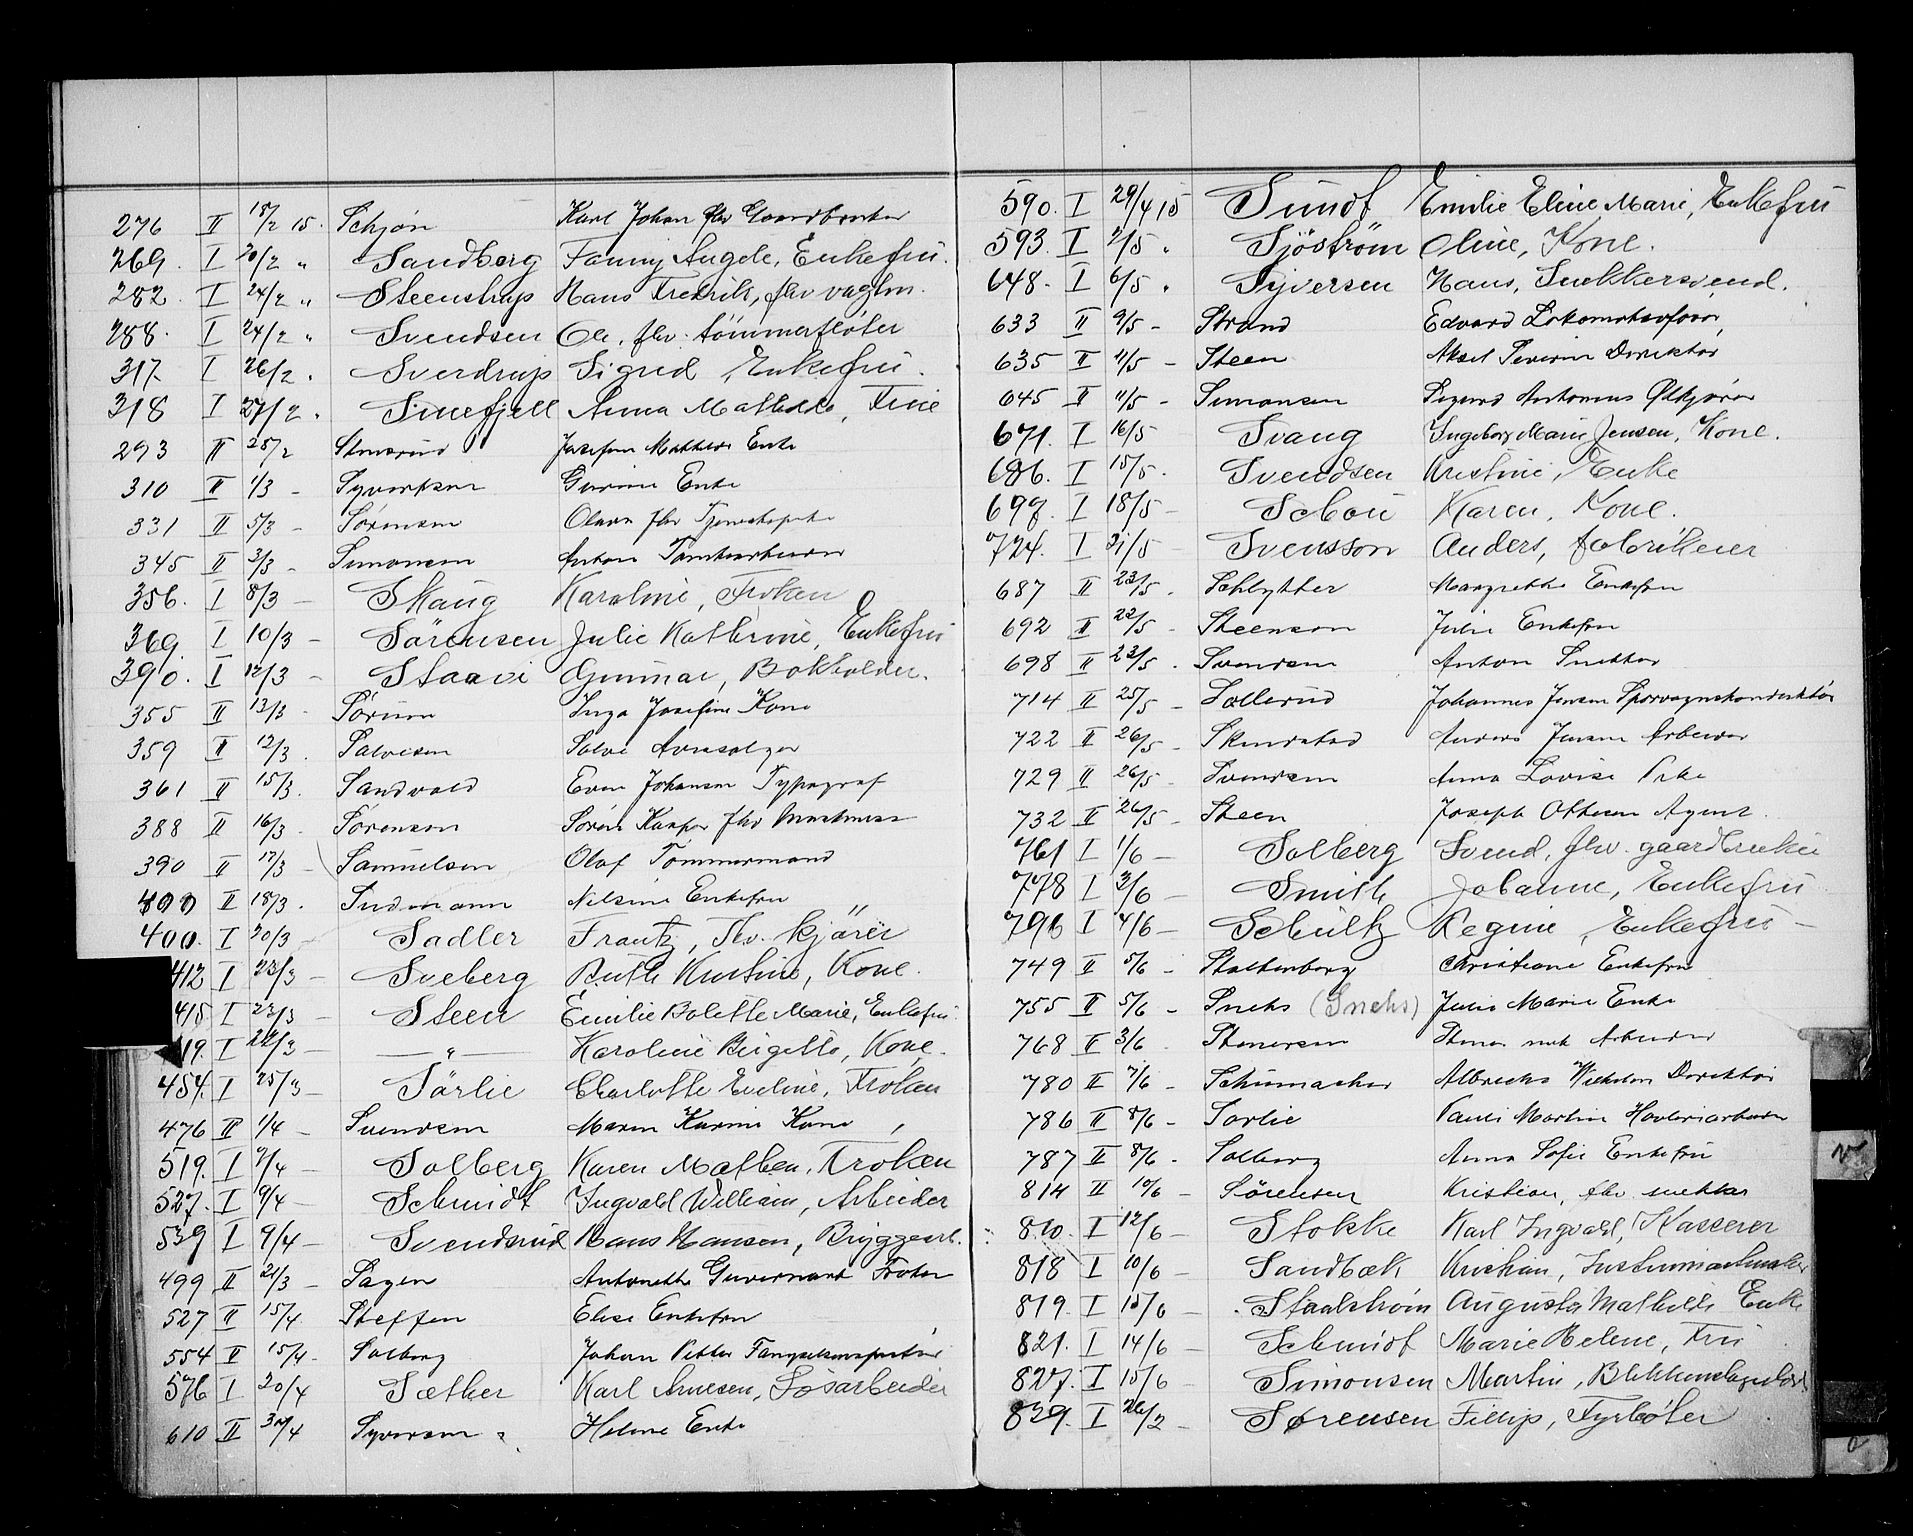 276 II 18/2 15. Schjøn Karl Johan flv Gaardbruker
269. I 20/2 " Sandberg Fanny Angele, Enkefru.
282. I 24/2 " Steenstrup Hans Fredrik, flv vagtm.
288. I 24/2 " Svendsen Ole, flv. tømmerfløter
317. I 26/2 . Sverdrup Sigrid, Enkefru.
318 I 27/2 . Snefjell Anna Mathilde, Frue
293 II 25/2 Josefine Mathilde Enke
310 II 1/3 - Syvertsen Gurine Enke
331 II 5/3 - Sørensen Olava flv
345 II 3/3 - Simonsen Anton
356. I 8/3 - Skaug Karoline, Frøken
369. I 10/3 - Sörensen Julie Kathrine, Enkefru
390. I 12/3 - Staavi Gunnar, Bokholder.
355 II 13/3 - Sørum Inga Josefine Kone
359 II 12/3 . Salvesen Salve Avissælger
361 II 15/3. Sandvold Even Johansen Typograf
388 II 16/3 . Sørensen Søren Kasper flv
390 II 17/3 - Samuelsen Olaf Tømmermand
400 II 18/3 . Sudmann Nilsine Enkefru
400. I 20/3 - Sadler Frantz, flv. kjører
412 I 23/3 - Sveberg Ruth Kristine, Kone.
415 I 23/3 - Steen Emilie Bolette Marie, Enkefru.
419. I 24/3 — " — Karoline Birgitte, Kone.
454. I 25/3 - Sörlie Charlotte Eveline, Frøken
476 II 1/4 - Svendsen Maren Karine Kone
519. I 9/4 - Solberg Karen Mathea, Frøken
527. I 9/4 - Schmidt Ingvald William, Arbeider
539 I 9/4 - Svendsrud Hans Hansen, Bryggearb.
499 II 21/3 - Sagen Antonette Guvernant Frøken
527 II 15/4 Steffen Elise Enkefru
554 II 15/4 - Solberg Johan Petter
576 I 20/4 Sæther Karl Arnesen, Løsarbeider
610 II 30/4 Syversen Helene Enke
590. I 29/4 15 Sundt, Emilie Eline Marie, Enkefru
593. I 2/5 . Sjöström Oline, Kone.
648. I 6/5 . Syversen Hans, Snekkersvend.
633 II 9/5 - Strand Edvard Lokomotivfører
635 II 11/5 - Steen Aksel Severin Direktør
645 II 11/5 - Simonsen Sigurd Antonius Ølkjører
671. I 16/5 Svang Ingeborg Marie Jensen, Kone.
686. I 15/5. Svendsen Kristine, Enke
697. I 18/5 - Schou Karen, Kone.
724. I 21/5 Svensson Anders, fabrikeier
687 II 23/5 . Schlytter Margrethe Enkefru
692 II 22/5 - Steenson Julie Enkefru
698 II 23/5 . Svendsen Anton Snekker
714 II 25/5 - Sollerud Johannes Jensen Sporvognskonduktør
722 II 26/5 - Skundstad Anders Jensen Arbeider
729 II 26/5 - Svendsen Anna Lovise Pike
732 II 26/5 - Steen Joseph Ottesen Agent
761 I 1/6 - Solberg Svend, flv. gaardbruker
778 I 3/6 - Smith Johanne, Enkefru
796 I 4/6 - Schultz Regine, Enkefru -
749 II 5/6 - Stoltenberg Christiane Enkefru
755 II 5/6 - Sneks (Sneks) Julie Marie Enke
768 II 3/6 - Stenersen Arbeider
780 II 7/6 - Schumacher Albrecht Wilhelm Direktør
786 II 8/6 - Sorlie Pauli Martin Høvleriarbeider
787 II 8/6 - Solberg Anna Sofie Enkefru
814 II 10/6 - Sörensen Kristian, flv. snekker
810. I 12/6 - Stokke Karl Ingvald, Kasserer
818 I 10/6 - Sandbæk Kristian, Instrumentmaker
819. I 15/6 - Staalstrøm Augusta Mathilde Enke
821. I 14/6 - Schmidt Marie Helene, Fru
827. I 15/6 - Simonsen Martin, Blikkenslagerlærl.
839. I 26/2 - Sørensen Fillip, Fyrbøter
V